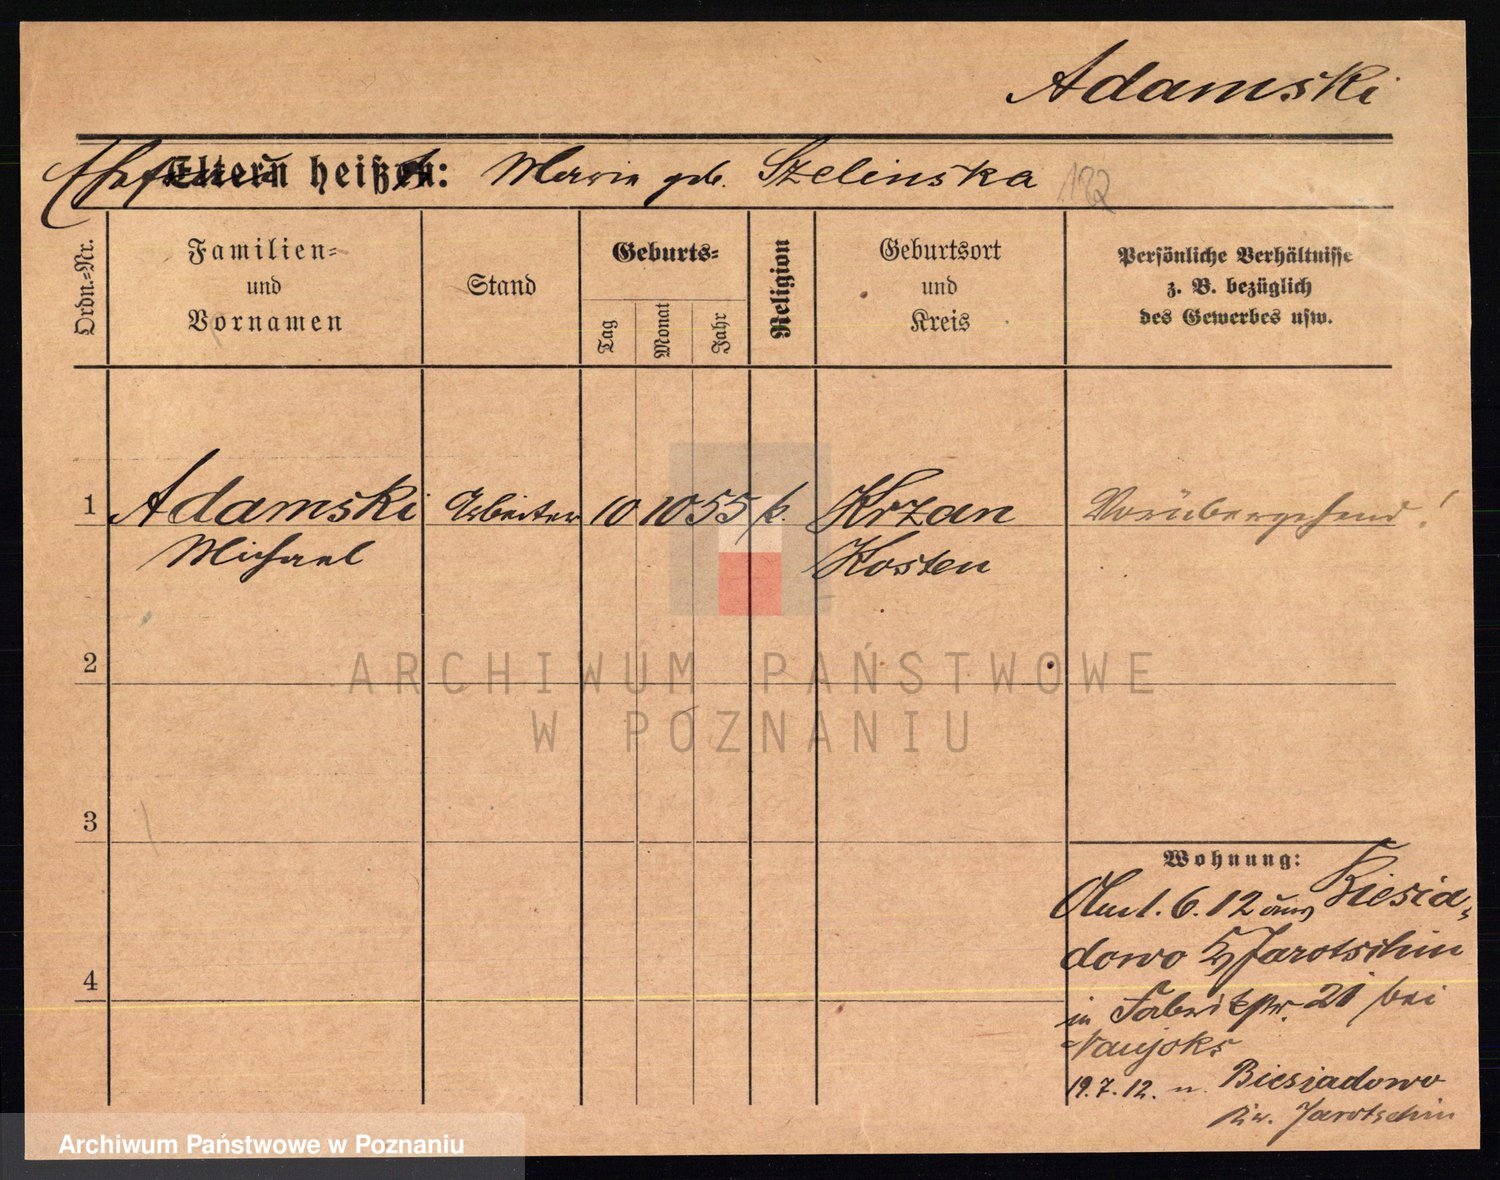 Adamski
Eltern heißen: Maria geb. Szelinska
122
Ordn.-Nr.
Familien-
und
Vornamen
Stand
Geburts-
Tag
Monat
Jahr
Religion
Geburtsort
und
Kreis
Persönliche Verhältnisse
z. B. bezüglich
des Gewerbes usw.
1 Adamski Arbeiter 10 10 55 k. Krzan Vorübergehend!
Michael Kosten
2
3
4
Wohnung:
1.6.12 aus Biesia-
dowo Jarotschin
in Fabrikstr. 21 bei
Naujoks
19.7.12. n. Biesiadowo
Kr. Jarotschin
ARCHIWUM PAŃSTWOWE
W POZNANIU
Archiwum Państwowe w Poznaniu